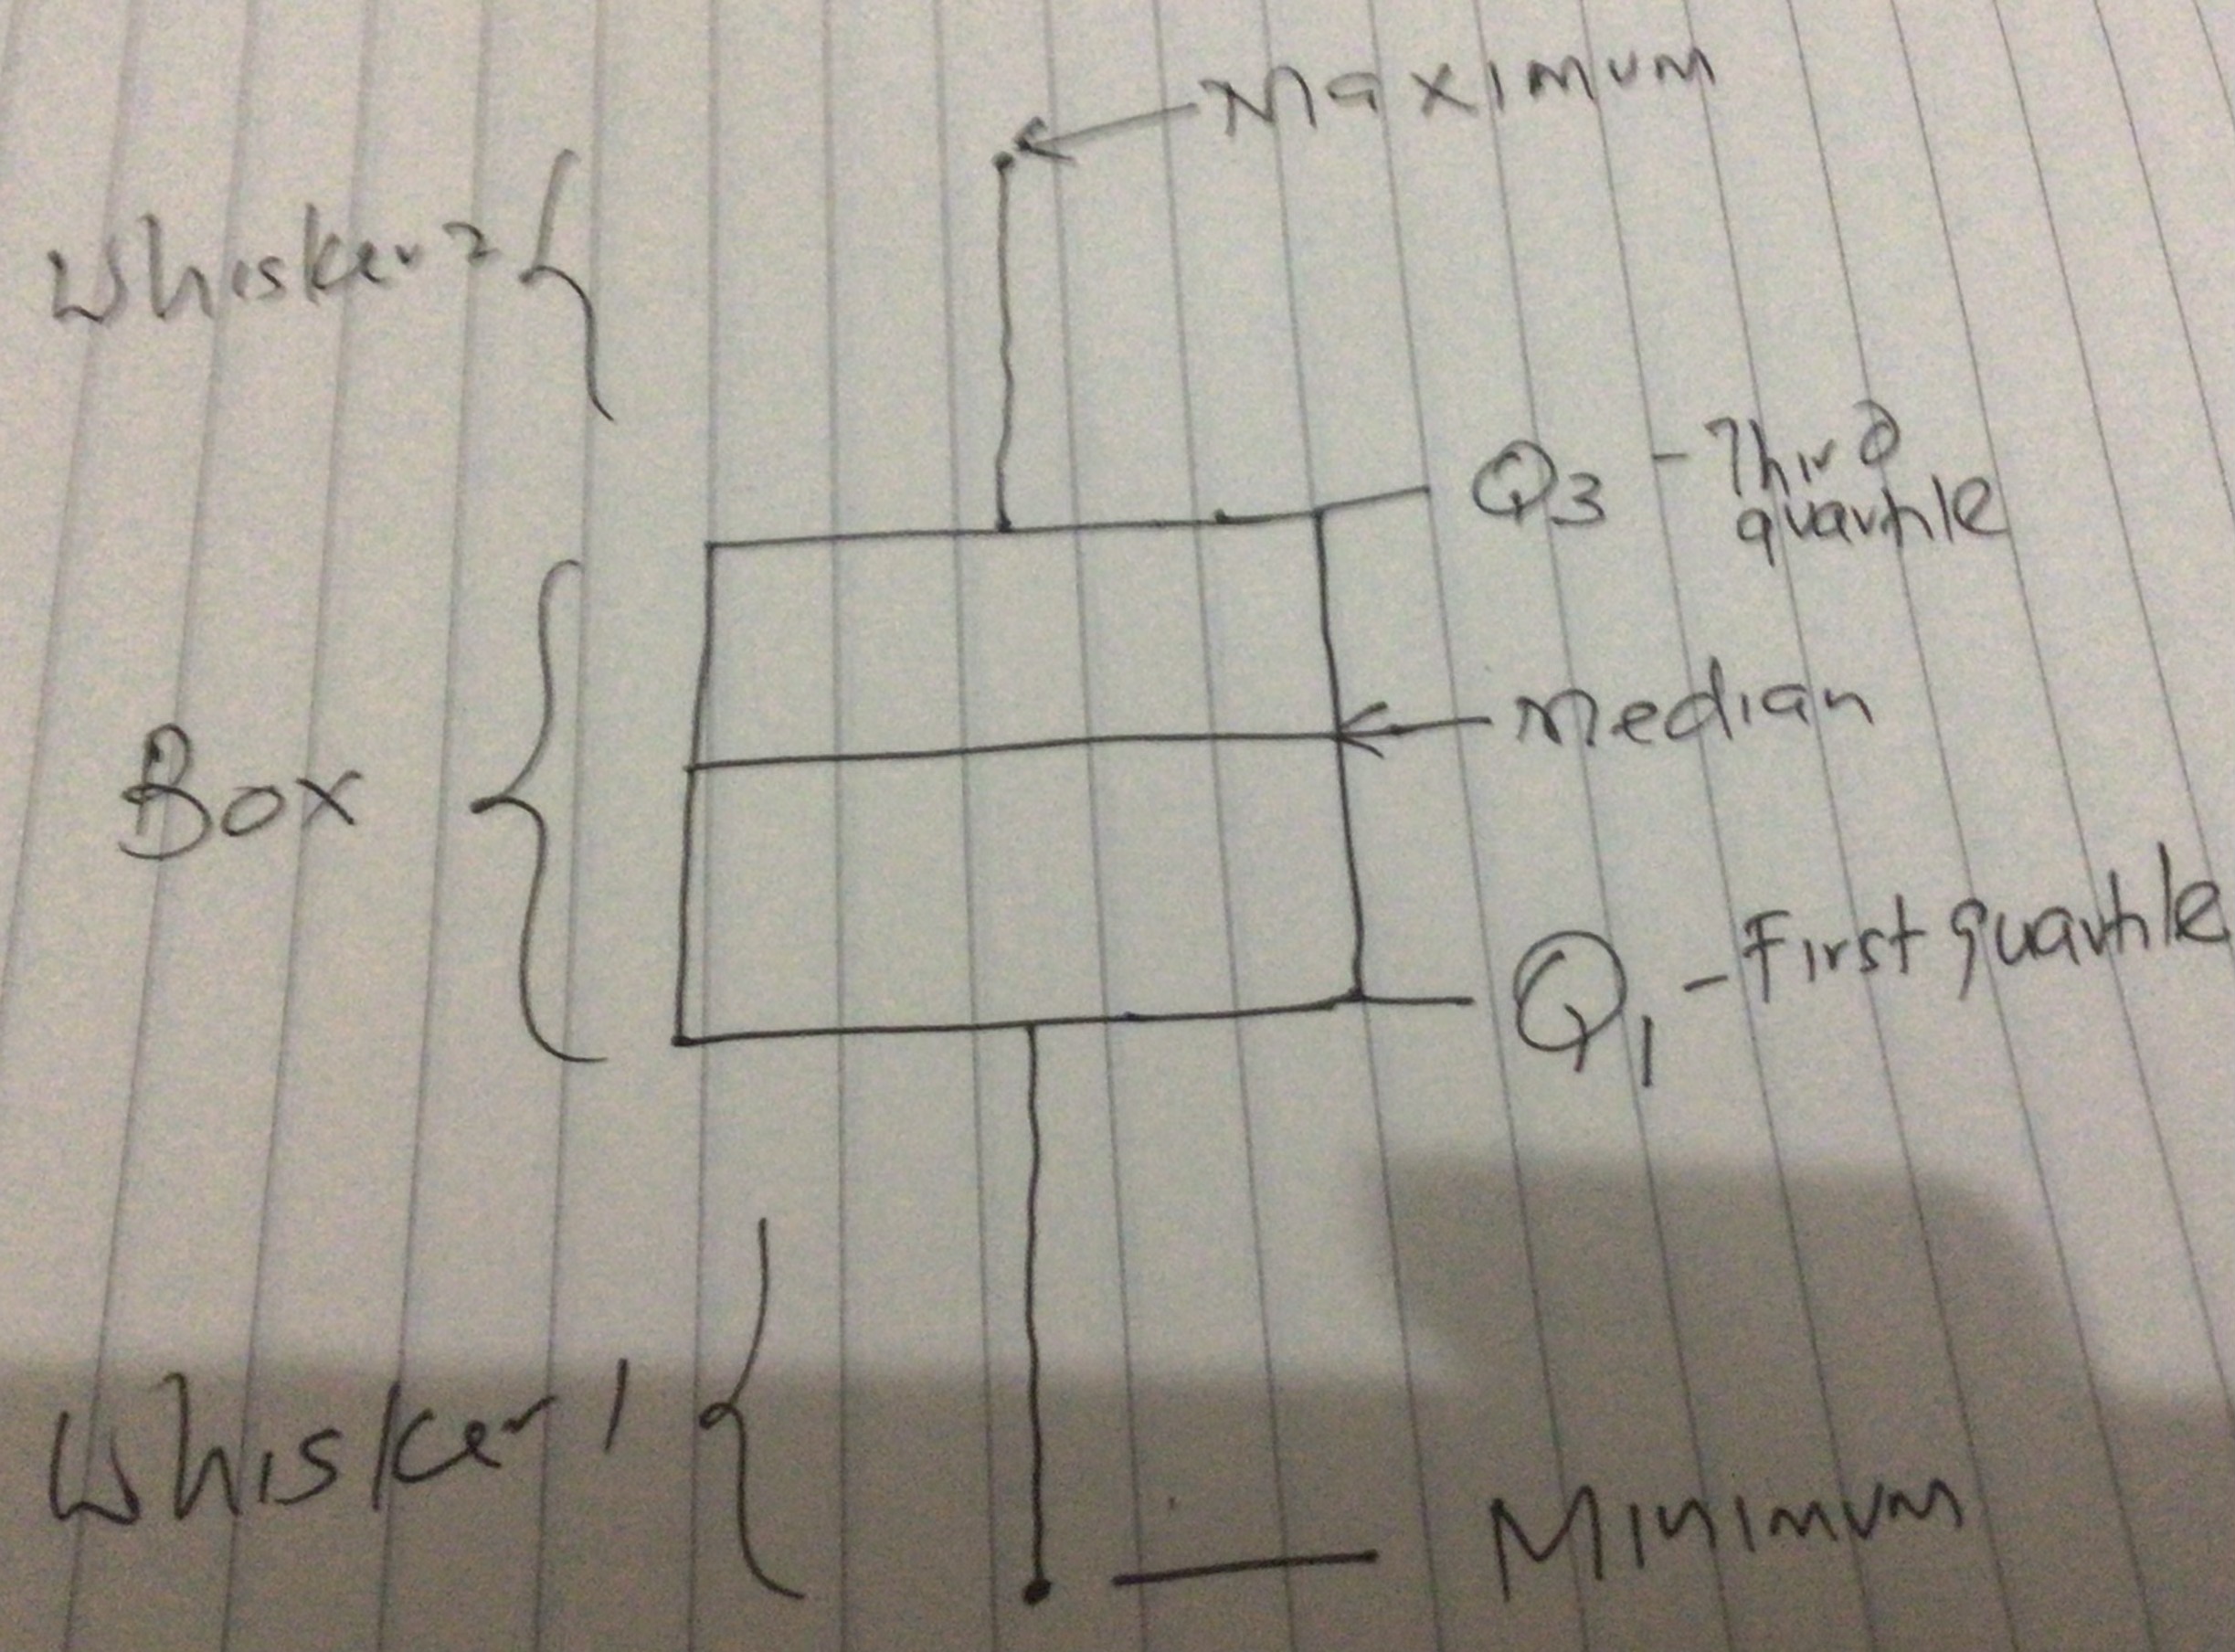 Maximum
Whisker 2
Q3 - Third
quartile
Median
Box
Q1 - First quartile
Whisker 1
Minimum